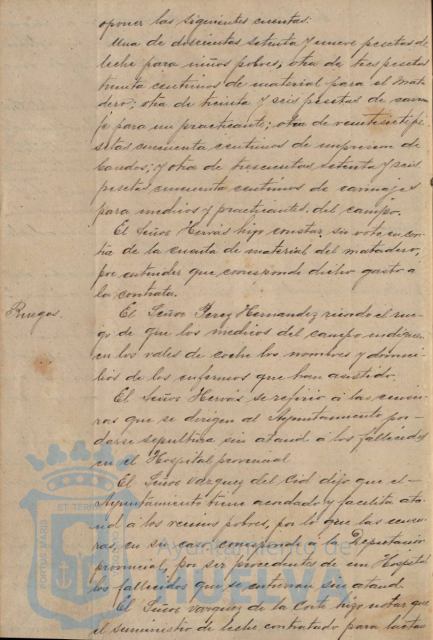 oponer las siguientes cuentas:
Una de doscientas setenta y nueve pesetas de
leche para niños pobres, otra de tres pesetas
treinta centimos de material para el mata
dero; otra de treinta y seis pesetas de carrua
je para un practicante; otra de veintisiete pe
setas cincuenta centimos de impresion de
bandos; y otra de trescientas setenta y seis
pesetas cincuenta centimos de carruajes
para medicos y practicantes del campo.
El Señor Hervás hizo constar su voto en con
tra de la cuenta de material del matadero,
por entender que corresponde dicho gasto a
la contrata.
Ruegos.
El Señor Perez Hernandez el rue
go de que los medicos del campo indiquen
en los vales de coche los nombres y domici
lios de los enfermos que han asistido.
El Señor Hervás se refirió a las censu
ras que se dirigen al Ayuntamiento por
darse sepultura sin ataud á los fallecidos
en el Hospital provincial
El Señor Vazquez del Cid dijo que el
Ayuntamiento tiene acordado y facilita ata
ud á los vecinos pobres, por lo que las censu
ras, en su caso corresponde á la Diputación
provincial, por ser procedentes de un Hospital
los fallecidos que se entierran sin ataud.
El Señor Vazquez de la Corte hizo notar que
el suministro de leche contratado para
PORTUS MARIS ET TERRAE
Ayuntamiento de
HUELVA